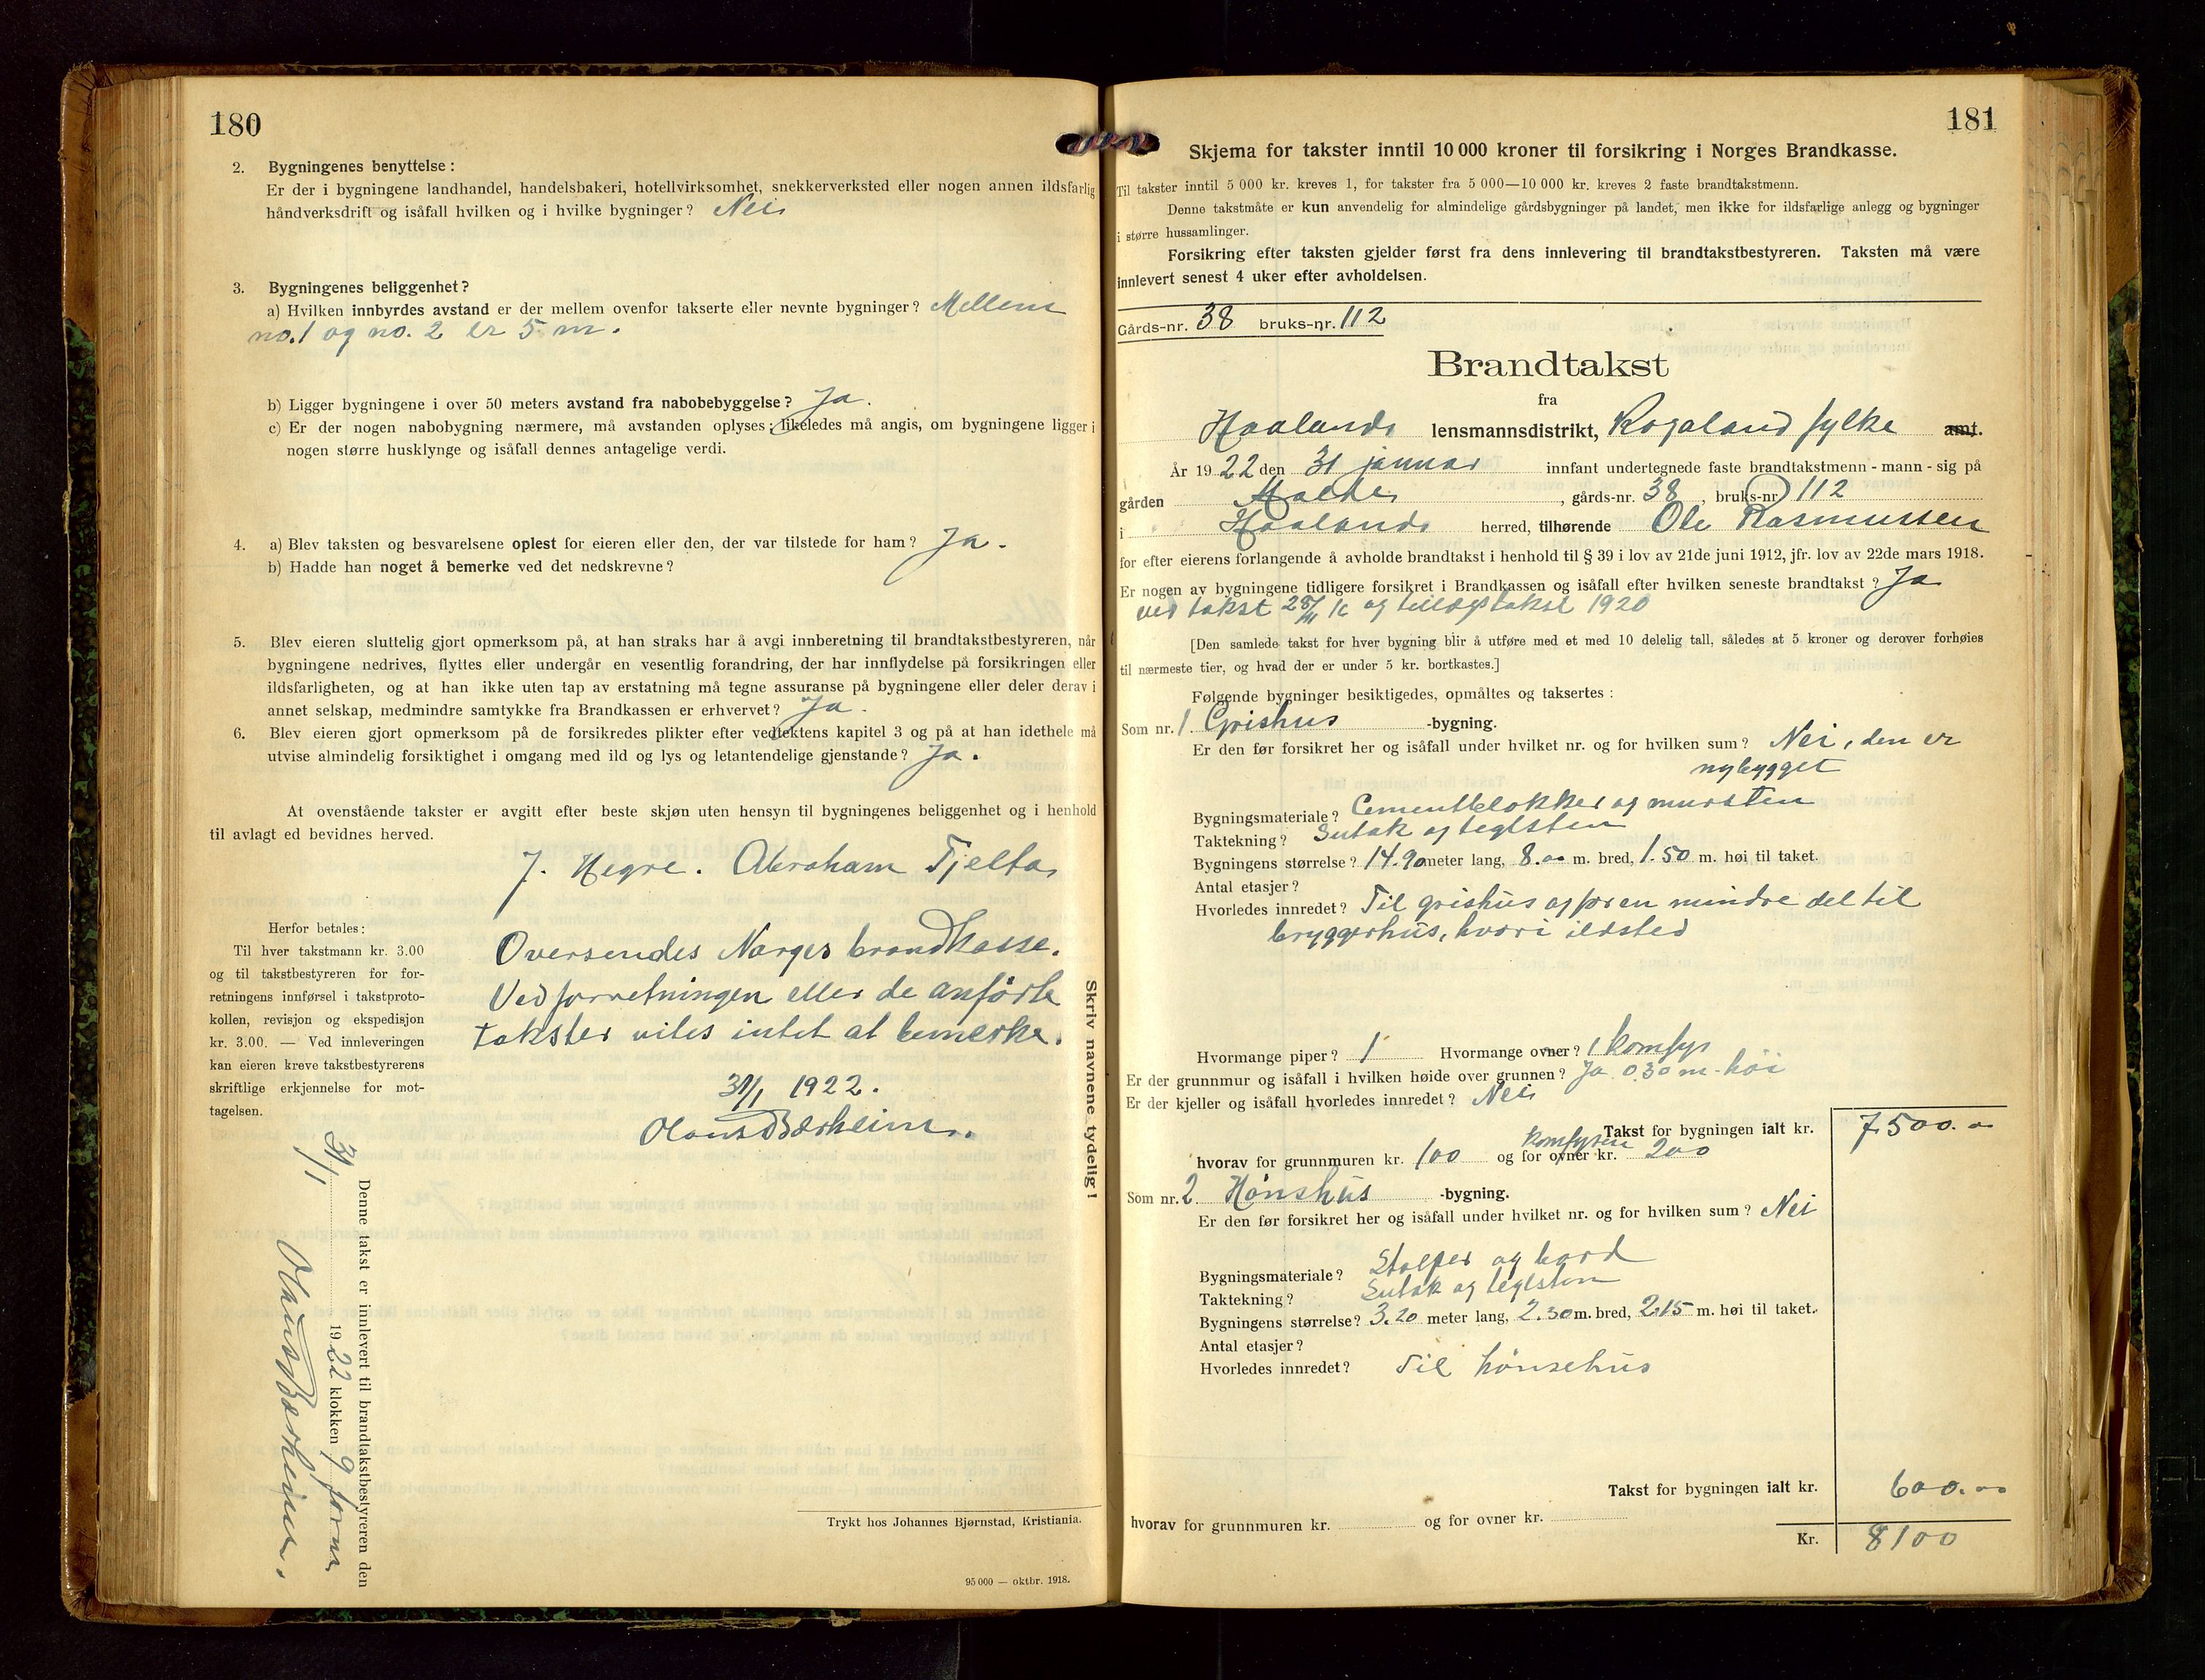 180
2. Bygningenes benyttelse:
Er der i bygningene landhandel, handelsbakeri, hotellvirksomhet, snekkerverksted eller nogen annen ildsfarlig
håndverksdrift og isåfall hvilken og i hvilke bygninger? Nei
3. Bygningenes beliggenhet?
a) Hvilken innbyrdes avstand er der mellem ovenfor takserte eller nevnte bygninger? Mellem
no. 1 og no. 2 er 5 m.
b) Ligger bygningene i over 50 meters avstand fra nabobebyggelse? Ja.
c) Er der nogen nabobygning nærmere, må avstanden oplyses; likeledes må angis, om bygningene ligger i
nogen større husklynge og isåfall dennes antagelige verdi.
4. a) Blev taksten og besvarelsene oplest for eieren eller den, der var tilstede for ham? Ja.
b) Hadde han noget å bemerke ved det nedskrevne?
5. Blev eieren sluttelig gjort opmerksom på, at han straks har å avgi innberetning til brandtakstbestyreren, når
bygningene nedrives, flyttes eller undergår en vesentlig forandring, der har innflydelse på forsikringen eller
ildsfarligheten, og at han ikke uten tap av erstatning må tegne assuranse på bygningene eller deler derav i
annet selskap, medmindre samtykke fra Brandkassen er erhvervet? Ja.
6. Blev eieren gjort opmerksom på de forsikredes plikter efter vedtektens kapitel 3 og på at han idethele må
utvise almindelig forsiktighet i omgang med ild og lys og letantendelige gjenstande? Ja.
At ovenstående takster er avgitt efter beste skjøn uten hensyn til bygningenes beliggenhet og i henhold
til avlagt ed bevidnes herved.
J. Hegre. Abraham Tjelta
Herfor betales:
Til hver takstmann kr. 3.00
og til takstbestyreren for for-
retningens innførsel i takstproto-
kollen, revisjon og ekspedisjon
kr. 3.00. — Ved innleveringen
kan eieren kreve takstbestyrerens
skriftlige erkjennelse for mot-
tagelsen.
Oversendes Norges brandkasse.
Ved forretningen eller de anførte
takster vites intet at bemerke.
31/1 1922.
Olaus Bærheim.
Skriv navnene tydelig!
Denne takst er innlevert til brandtakstbestyreren den
31/1 1922 klokken 9 form
Olaus Bærheim.
Trykt hos Johannes Bjørnstad, Kristiania.
95 000 — oktbr. 1918.
181
Skjema for takster inntil 10 000 kroner til forsikring i Norges Brandkasse.
Til takster inntil 5 000 kr. kreves 1, for takster fra 5 000—10 000 kr. kreves 2 faste brandtakstmenn.
Denne takstmåte er kun anvendelig for almindelige gårdsbygninger på landet, men ikke for ildsfarlige anlegg og bygninger
i større hussamlinger.
Forsikring efter taksten gjelder først fra dens innlevering til brandtakstbestyreren. Taksten må være
innlevert senest 4 uker efter avholdelsen.
Gårds-nr. 38 bruks-nr. 112
Brandtakst
fra
Haalands lensmannsdistrikt, Rogaland fylke amt.
År 1922 den 31 januar innfant undertegnede faste brandtakstmenn - mann - sig på
gården , gårds-nr. 38, bruks-nr 112
i Haalands herred, tilhørende Ole Rasmussen
for efter eierens forlangende å avholde brandtakst i henhold til § 39 i lov av 21de juni 1912, jfr. lov av 22de mars 1918.
Er nogen av bygningene tidligere forsikret i Brandkassen og isåfall efter hvilken seneste brandtakst? Ja
ved takst og tillægstakst 1920
[Den samlede takst for hver bygning blir å utføre med et med 10 delelig tall, således at 5 kroner og derover forhøies
til nærmeste tier, og hvad der er under 5 kr. bortkastes.]
Følgende bygninger besiktigedes, opmåltes og taksertes:
Som nr. 1 Grishus -bygning.
Er den før forsikret her og isåfall under hvilket nr. og for hvilken sum? Nei, den er
nybygget
Bygningsmateriale? Cementblokker og mursten
Taktekning? Sutak og teglsten
Bygningens størrelse? 14.90 meter lang, 8.00 m. bred, 1.50 m. høi til taket.
Antal etasjer?
Hvorledes innredet? Til grishus og for en mindre del til
bryggerhus, hvori ildsted
Hvormange piper? 1 Hvormange ovner? 1 komfyr
Er der grunnmur og isåfall i hvilken høide over grunnen? Ja 0.30 m. høi
Er der kjeller og isåfall hvorledes innredet? Nei
Takst for bygningen ialt kr. 7500.00
komfyren
hvorav for grunnmuren kr. 100 og for ovner kr. 200
Som nr. 2 Hønshus -bygning.
Er den før forsikret her og isåfall under hvilket nr. og for hvilken sum? Nei
Bygningsmateriale? Stolper og bord
Taktekning? Sutak og teglsten
Bygningens størrelse? 3.20 meter lang, 2.30 m. bred, 2.15 m. høi til taket.
Antal etasjer?
Hvorledes innredet? Til hønsehus
Takst for bygningen ialt kr. 600.00
hvorav for grunnmuren kr. og for ovner kr.
Kr. 8100